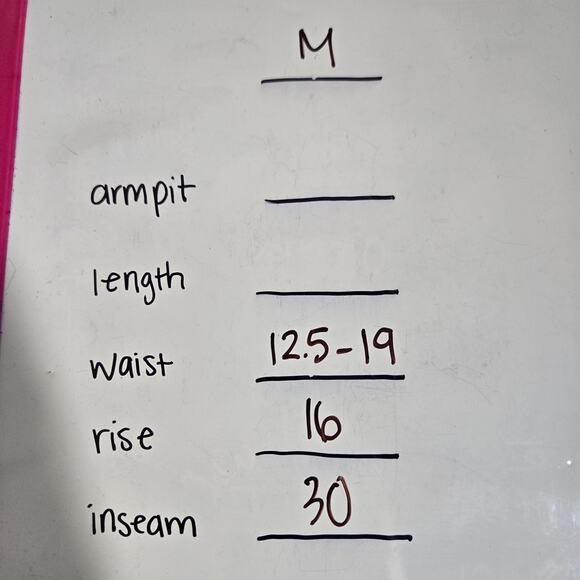 M
armpit
length
waist 12.5-19
rise 16
inseam 30